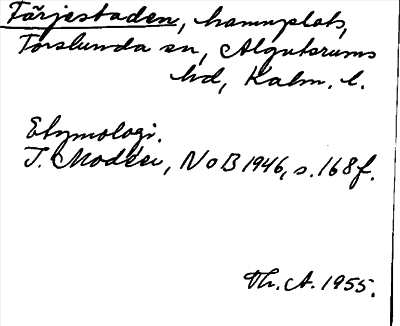 Färjestaden, hamnplats,
Torslunda sn, Algutsrums
hd, Kalm. l.
Etymologi.
I. Modéer, NoB 1946, s. 168f.
Th. A. 1955.